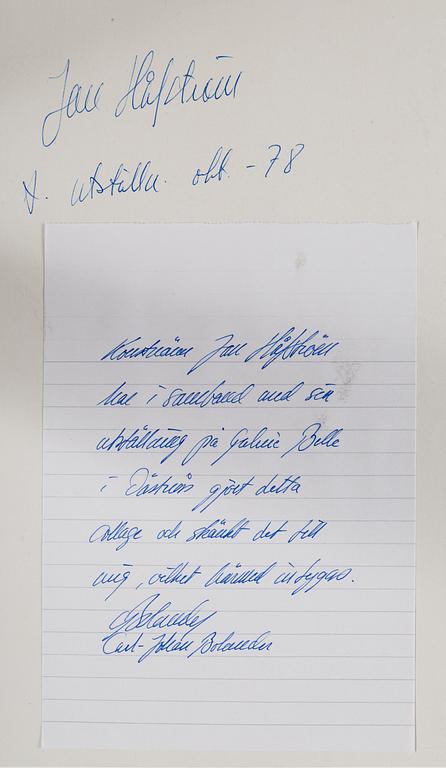 Jan Håfström
t. utställn. okt. -78
Konstnären Jan Håfström
har i samband med sin
utställning på Galerie Belle
i Västerås gjort detta
collage och skänkt det till
mig, vilket härmed intygas.
CJBolander
Carl-Johan Bolander